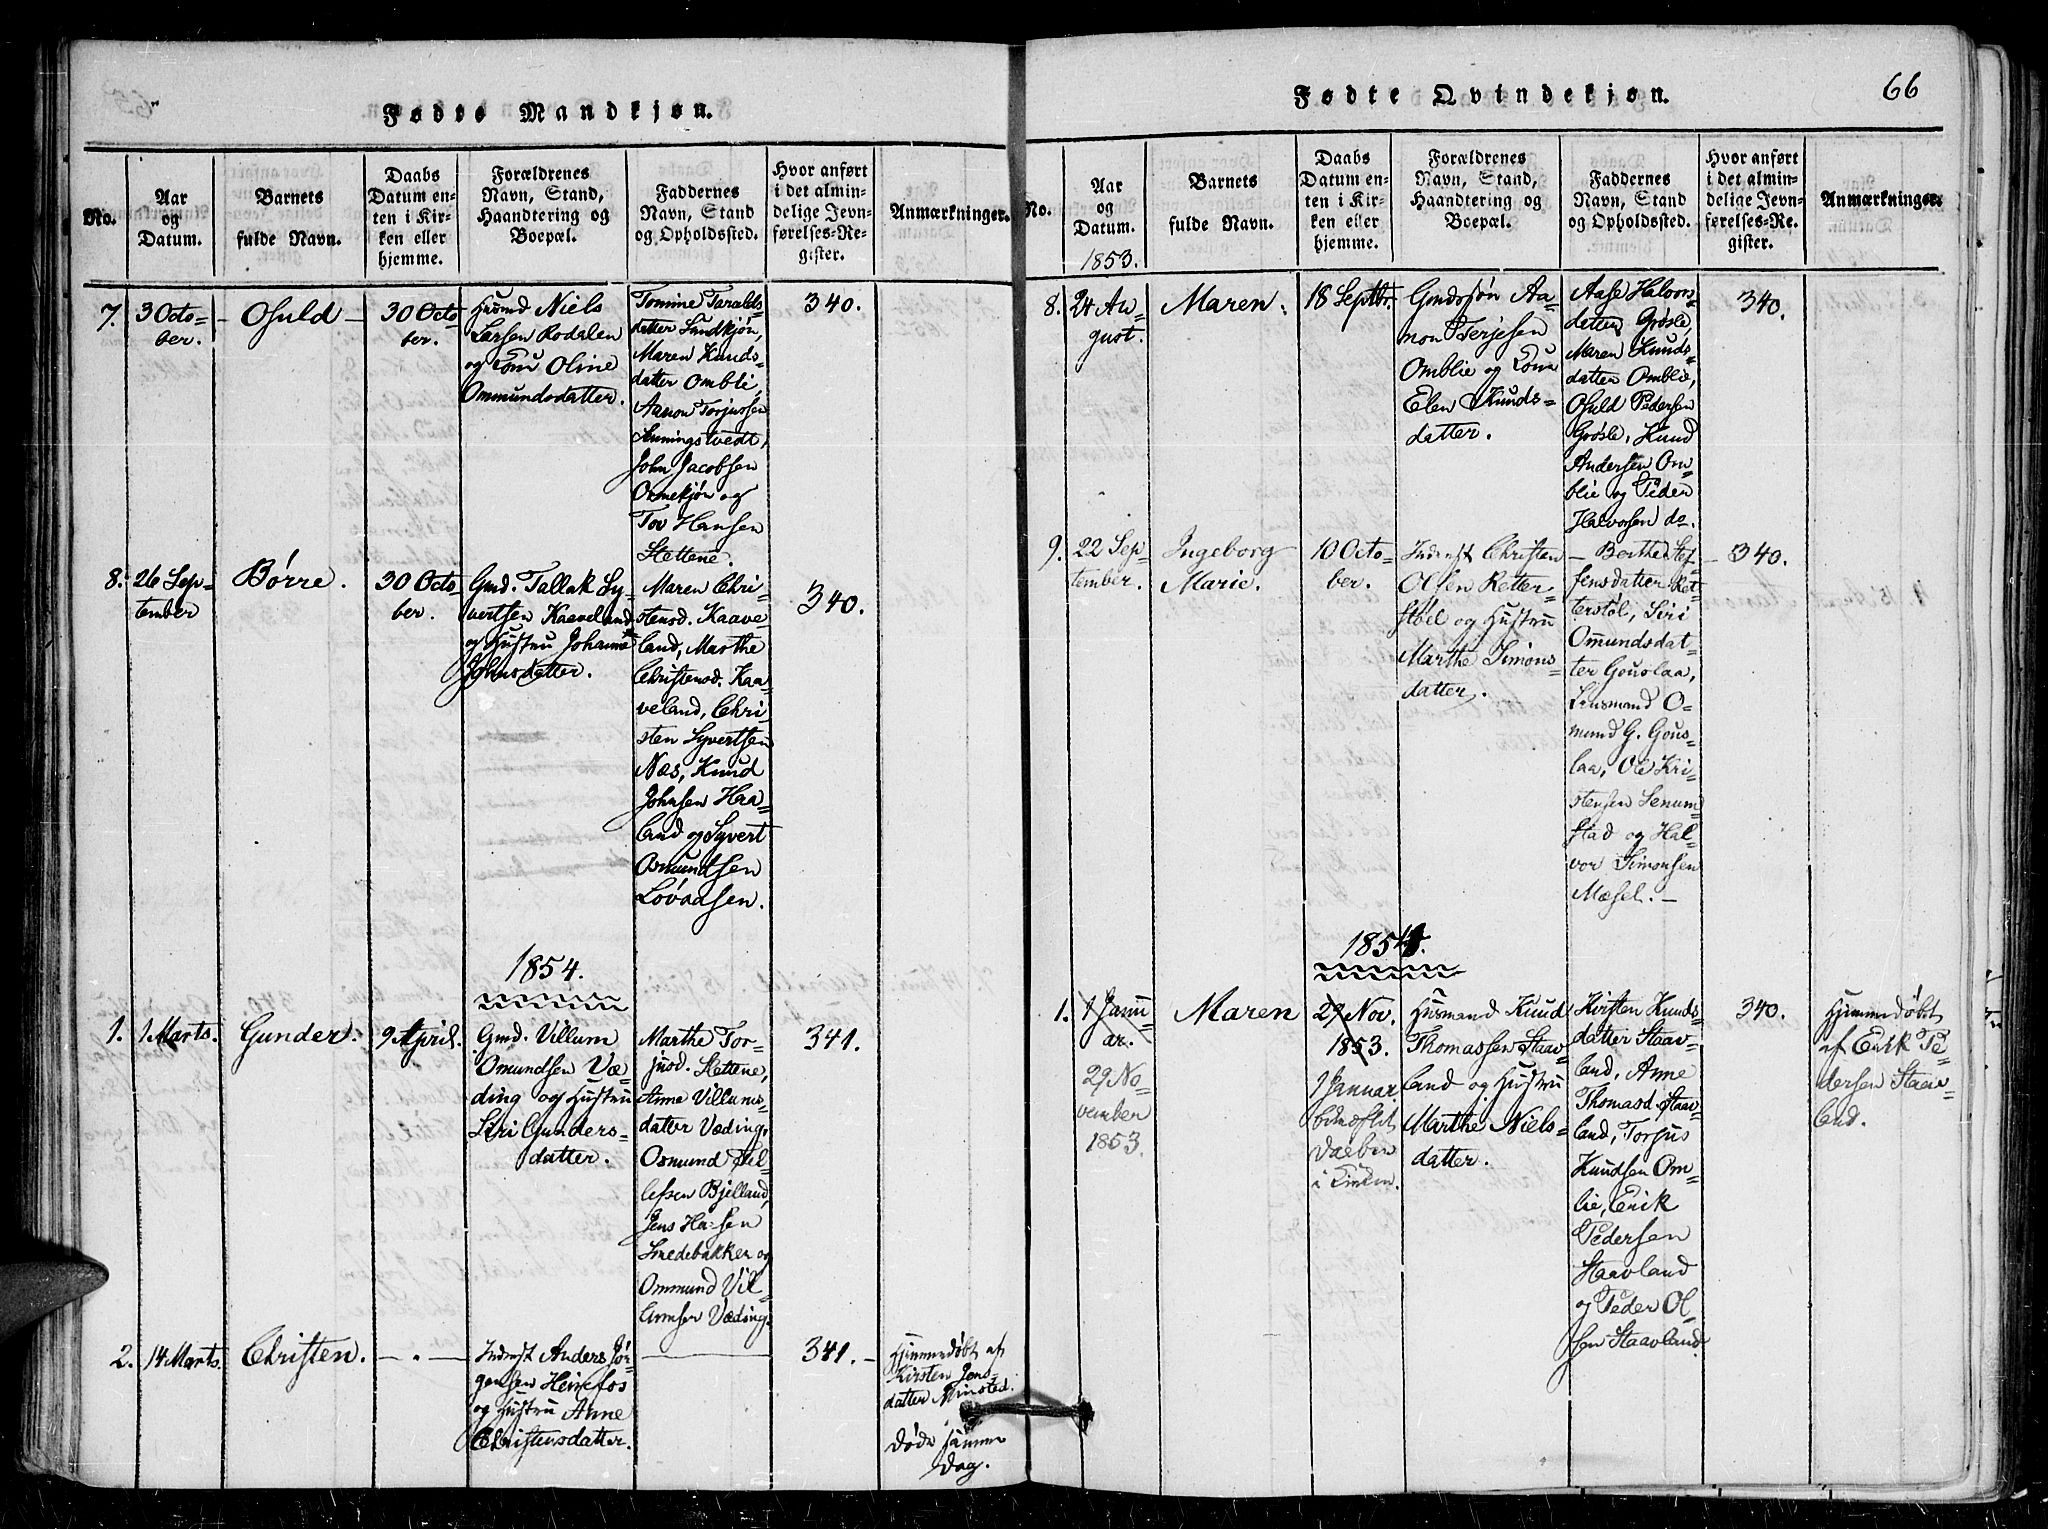 Fødte Mandkjøn.
No.
Aar
og
Datum.
Barnets
fulde Navn.
Daabs
Datum en-
ten i Kir-
ken eller
hjemme.
Forældrenes
Navn, Stand,
Haandtering og
Boepæl.
Faddernes
Navn, Stand
og Opholdssted.
Hvor anført
i det almin-
delige Jevn-
førelses-Re-
gister.
Anmærkninger.
7.
3 Octo-
ber.
Osuld
30 Octo-
ber.
Husmd Niels
Larsen Rodalen
og Kone Oline
Ommundsdatter.
Tomine Taralds-
datter Sandkjøn,
Maren Knuds-
datter Omblie,
Aanon Torjussen
Anningstvedt,
John Jacobsen
Ormekjøn og
Tov Hansen
Slettene.
340.
8.
26 Sep-
tember
Børre.
30 Octo-
ber.
Gmd. Tallak Sy-
vertsen Kaaveland
og Hustru Johanne
Johnsdatter.
Maren Chri-
stensd. Kaave-
land, Marthe
Christensd. Kaa-
veland, Chri-
sten Syvertsen
Næs, Knud
Johnsen Haa-
land og Syvert
Osmundsen
Løvaasen.
340.
1854.
1.
1 Marts.
Gunder.
9 April.
Gmd. Villum
Omundsen Væ-
ding og Hustru
Siri Gunders-
datter.
Marthe Tor-
jusd. Slettene,
Anne Villums-
datter Væding,
Osmund
Bjelland,
Jens Hansen
Smedebakken og
Ommund Vil-
lumsen Væding.
341.
2.
14 Marts.
Christen.
Inderst Anders Jør-
gensen Heirefos
og Hustru Anne
Christensdatter.
341.
Hjemmedøbt af
Kirsten Jens-
datter Minsted.
Døde samme
Dag.
Fødte Qvindekjøn.
66
No.
Aar
og
Datum.
1853.
Barnets
fulde Navn.
Daabs
Datum en-
ten i Kir-
ken eller
hjemme.
Forældrenes
Navn, Stand,
Haandtering og
Boepæl.
Faddernes
Navn, Stand
og Opholdssted.
Hvor anført
i det almin-
delige Jevn-
førelses-Re-
gister.
Anmærkninger.
8.
24 Au-
gust.
Maren.
18 Septbr.
Gmdssøn Aa-
non Terjesen
Omblie og Kone
Elen Knuds-
datter.
Aase Halvors-
datter Grøsle,
Maren Knuds-
datter Omblie,
Osuld Pedersen
Grøsle, Knud
Andersen Om-
blie og Peder
Halvorsen do.
340.
9.
22 Sep-
tember.
Ingeborg
Marie.
10 Octo-
ber.
Inderst Christen
Olsen Retter-
støel og Hustru
Marthe Simons-
datter.
Berthe Stef-
fensdatter Ret-
terstøl, Siri
Omundsdat-
ter Gouslaa,
Lensmand O-
mund G. Gous-
laa, Ole Kri-
stensen Senum-
stad og Hal-
vor Simonsen
Mæsel.
340.
1854.
1.
1 Janu-
ar.
29 No-
vember
1853.
Maren
29 Nov.
1853.
1 Januar
Daaben
i Kirken.
Husmand Knud
Thomassen Staav-
land og Hustru
Marthe Niels-
datter.
Kirsten Knuds-
datter Staav-
land, Anne
Thomasd. Staav-
land, Torjus
Knudsen Om-
lie, Erik
Pedersen
Staavland
og Peder Ol-
sen Staavland.
340.
Hjemmedøbt
af Erik Pe-
dersen Staav-
land.